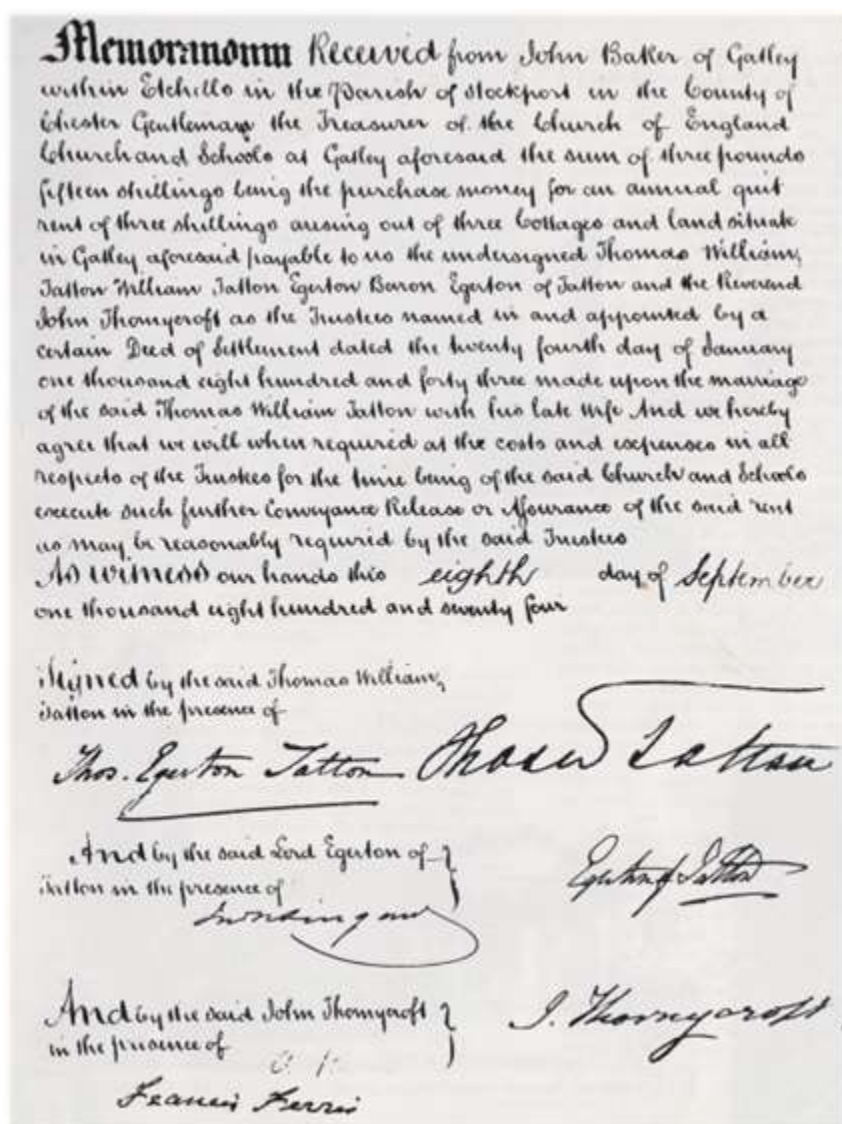 Memorandum Received from John Baker of Gatley
within Etchells in the Parish of Stockport in the County of
Chester Gentleman the Treasurer of the Church of England
Church and Schools at Gatley aforesaid the sum of three pounds
fifteen shillings being the purchase money for an annual quit
rent of three shillings arising out of three Cottages and land situate
in Gatley aforesaid payable to us the undersigned Thomas William
Tatton William Tatton Egerton Baron Egerton of Tatton and the Reverend
John Thornycroft as the Trustees named in and appointed by a
certain Deed of Settlement dated the twenty fourth day of January
one thousand eight hundred and forty three made upon the marriage
of the said Thomas William Tatton with his late Wife And we hereby
agree that we will when required at the costs and expenses in all
respects of the Trustees for the time being of the said Church and Schools
execute such further Conveyance Release or Assurance of the said rent
as may be reasonably required by the said Trustees
As witness our hands this eighth day of September
one thousand eight hundred and seventy four
Signed by the said Thomas William
Tatton in the presence of
Thos. Egerton Tatton Thos Wm Tatton
And by the said Lord Egerton of
Tatton in the presence of
Egerton of Tatton
And by the said John Thornycroft
in the presence of
J. Thornycroft
Francis Ferris